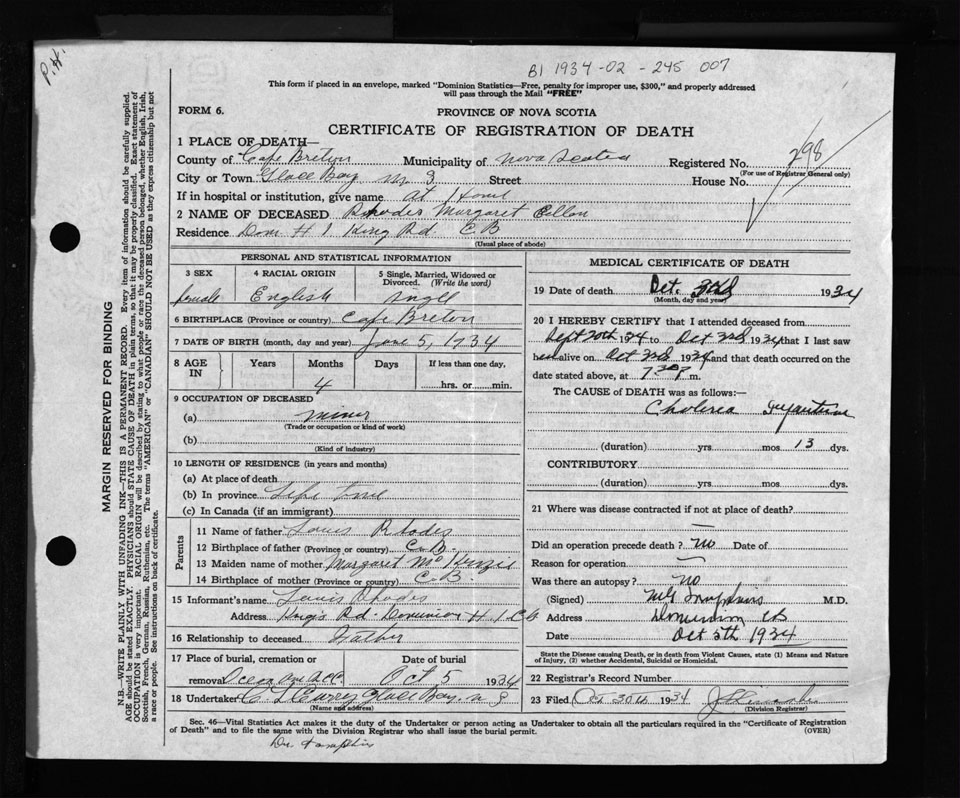 P.H.
B1 1934-02-245 007
This form if placed in an envelope, marked "Dominion Statistics—Free, penalty for improper use, $300," and properly addressed
will pass through the Mail "FREE"
FORM 6.
PROVINCE OF NOVA SCOTIA
CERTIFICATE OF REGISTRATION OF DEATH
1 PLACE OF DEATH—
County of Cape Breton Municipality of Nova Scotia Registered No. 298
(For use of Registrar General only)
City or Town Glace Bay N S Street House No.
If in hospital or institution, give name at Home
2 NAME OF DECEASED Rhodes Margaret Ellen
Residence Dom # 1 King Rd. C B
(Usual place of abode)
PERSONAL AND STATISTICAL INFORMATION
3 SEX 4 RACIAL ORIGIN 5 Single, Married, Widowed or
Divorced. (Write the word)
female English single
6 BIRTHPLACE (Province or country) Cape Breton
7 DATE OF BIRTH (month, day and year) June 5, 1934
8 AGE IN Years Months Days If less than one day,
4 hrs. or min.
9 OCCUPATION OF DECEASED
(a) minor
(Trade or occupation or kind of work)
(b)
(Kind of industry)
10 LENGTH OF RESIDENCE (in years and months)
(a) At place of death
(b) In province Life time
(c) In Canada (if an immigrant)
Parents
11 Name of father Louis Rhodes
12 Birthplace of father (Province or country) C.B.
13 Maiden name of mother Margaret McKenzie
14 Birthplace of mother (Province or country) C.B.
15 Informant's name Louis Rhodes
Address King's Rd. Dominion # 1 C B
16 Relationship to deceased Father
17 Place of burial, cremation or Date of burial
removal Oct 5 1934
18 Undertaker Glace Bay. N S
(Name and address)
MEDICAL CERTIFICATE OF DEATH
19 Date of death Oct. 3rd 1934
(Month, day and year)
20 I HEREBY CERTIFY that I attended deceased from
Sept 20th 1934 to Oct 3rd 1934 that I last saw
her alive on Oct 3rd 1934 and that death occurred on the
date stated above, at 7 30 P m.
The CAUSE of DEATH was as follows:—
Cholera Infantum
(duration) yrs mos 13 dys.
CONTRIBUTORY
(duration) yrs mos dys.
21 Where was disease contracted if not at place of death?
—
Did an operation precede death? No Date of
Reason for operation —
Was there an autopsy? No
(Signed) Tompkins M.D.
Address Dominion CB
Date Oct 5th 1934
State the Disease causing Death, or in death from Violent Causes, state (1) Means and Nature
of Injury, (2) whether Accidental, Suicidal or Homicidal.
22 Registrar's Record Number
23 Filed Oct 30th 1934
(Division Registrar)
Sec. 46—Vital Statistics Act makes it the duty of the Undertaker or person acting as Undertaker to obtain all the particulars required in the "Certificate of Registration
of Death" and to file the same with the Division Registrar who shall issue the burial permit. (OVER)
Dr Tompkins
MARGIN RESERVED FOR BINDING
N.B.—WRITE PLAINLY WITH UNFADING INK—THIS IS A PERMANENT RECORD. Every item of information should be carefully supplied.
AGE should be stated EXACTLY. PHYSICIANS should STATE CAUSE OF DEATH in plain terms, so that it may be properly classified. Exact statement of
OCCUPATION is very important. RACIAL ORIGIN will be described by stating to what people or race the deceased person belonged, whether English, Irish,
Scottish, French, German, Russian, Ruthenian, etc. The terms "AMERICAN" or "CANADIAN" SHOULD NOT BE USED as they express citizenship but not
a race or people. See instructions on back of certificate.